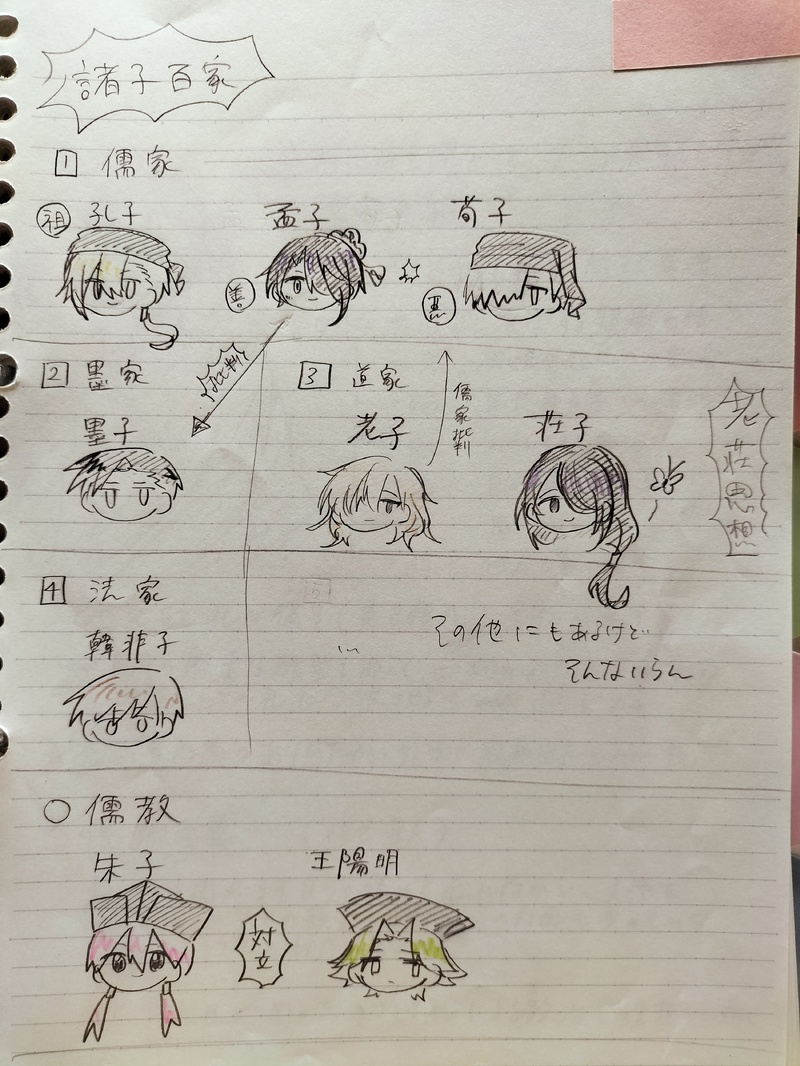 諸子百家
1 儒家
祖 孔子 孟子 荀子
善 悪
2 墨家
批判
墨子
3 道家
儒家批判
老子 荘子
老荘思想
4 法家
韓非子
...
その他にもあるけど
そんないらん
○ 儒教
朱子 王陽明
対立